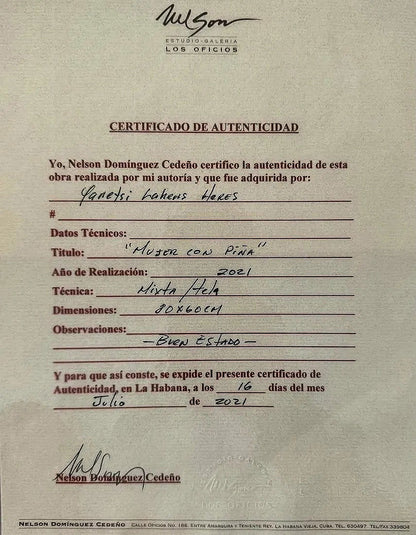 Nelson
ESTUDIO-GALERIA
LOS OFICIOS
CERTIFICADO DE AUTENTICIDAD
Yo, Nelson Domínguez Cedeño certifico la autenticidad de esta
obra realizada por mi autoría y que fue adquirida por:
Yanetsi Lahens Heres
#
Datos Técnicos:
Titulo: "MUJER CON PIÑA"
Año de Realización: 2021
Técnica: Mixta/tela
Dimensiones: 80x60cm
Observaciones:
— BUEN ESTADO —
Y para que así conste, se expide el presente certificado de
Autenticidad, en La Habana, a los 16 días del mes
Julio de 2021
Nelson
Nelson Domínguez Cedeño
NELSON DOMÍNGUEZ CEDEÑO CALLE OFICIOS NO. 166, ENTRE AMARGURA Y TENIENTE REY. LA HABANA VIEJA, CUBA. TEL. 630497 TEL/FAX 339804